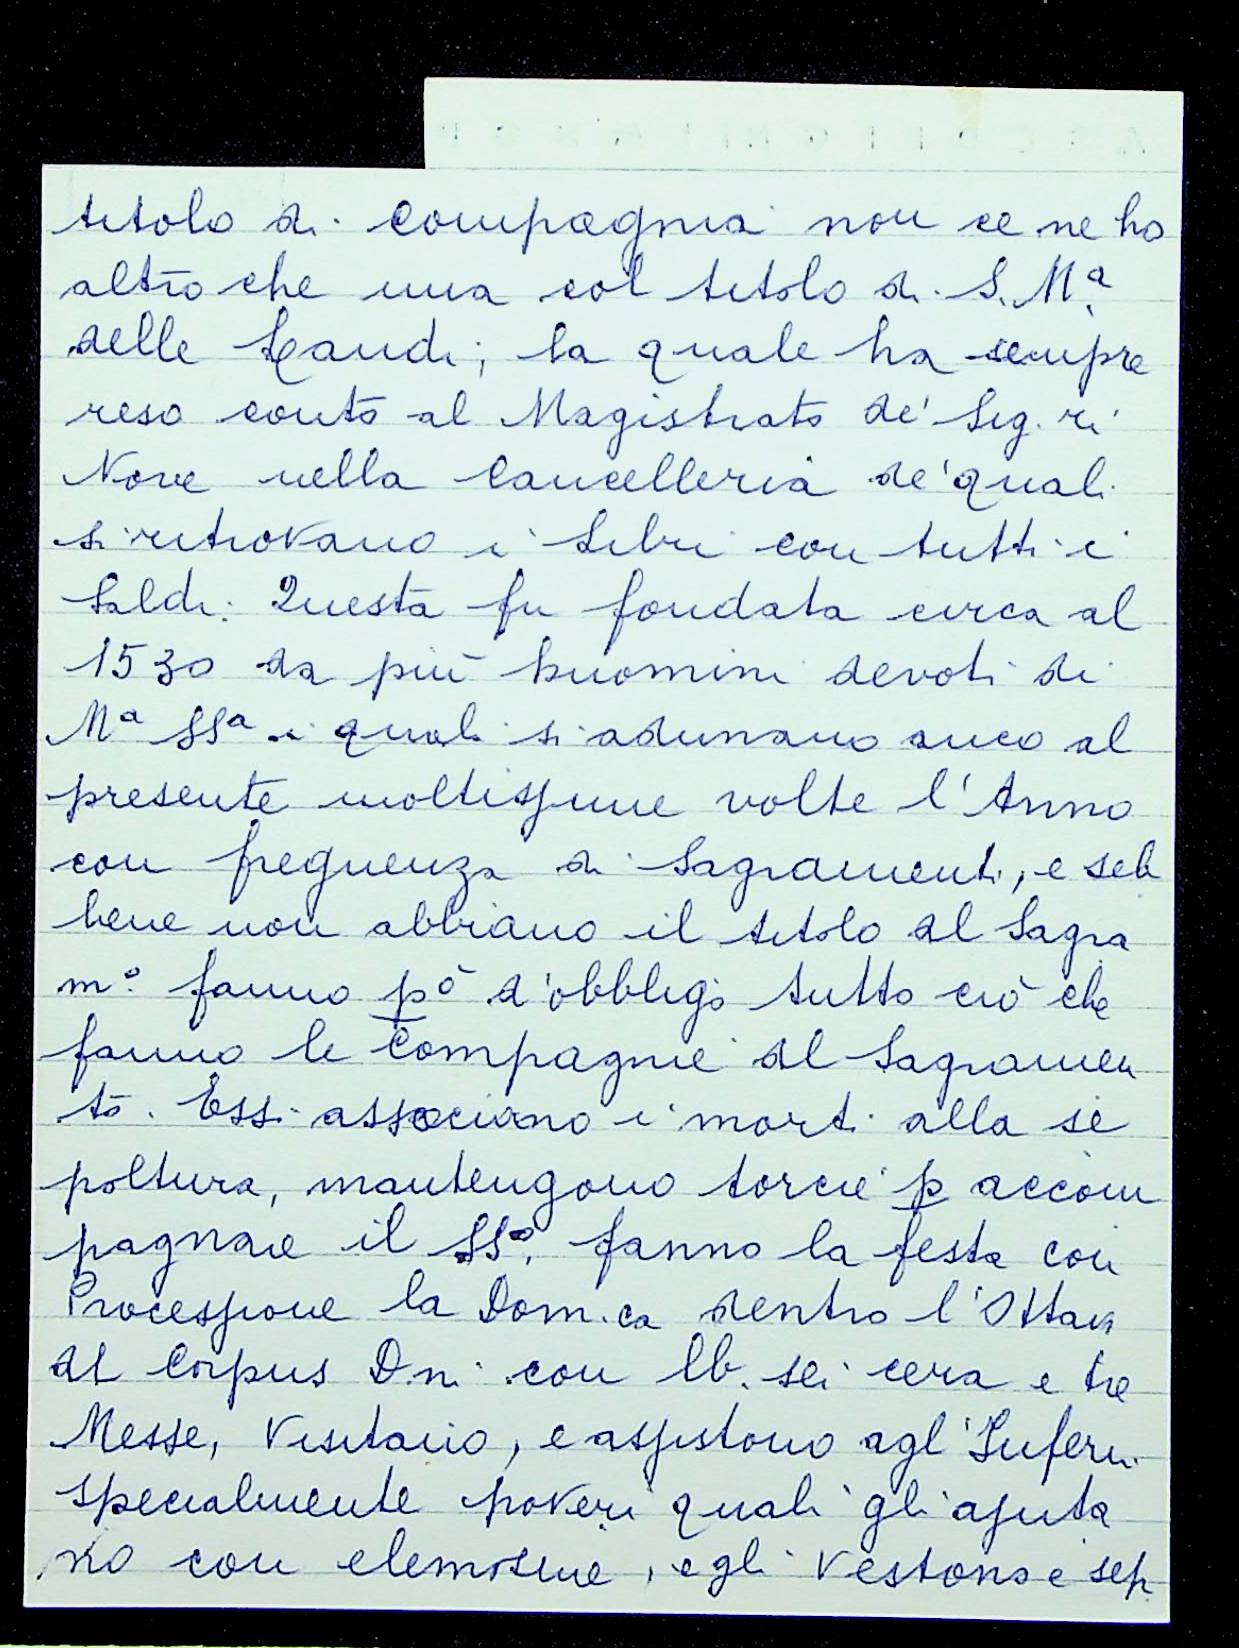 titolo di compagnia non ce ne ho
altro che una col titolo di S. Mª
delle Laudi; la quale ha sempre
reso conto al Magistrato de' Sig.ri
Nove nella Cancelleria de' quali
si ritrovano i Libri con tutti i
Saldi. Questa fu fondata circa al
1530 da più huomini devoti di
Mª SSª i quali si adunano anco al
presente moltissime volte l'Anno
con frequenza di Sagramenti, e seb
bene non abbiano il titolo del Sagra
mº fanno pº d'obbligo tutto ciò che
fanno le Compagnie del Sagramen
to. Essi associano i morti alla se
poltura, mantengono torcie p accom
pagnare il SSº, fanno la festa con
Processione la Dom.ca dentro l'Ottava
del Corpus D.ni con lb. sei cera e tre
Messe, Visitano, e assistono agl'Infermi
specialmente poveri quali gli ajuta
no con elemosine, e gli vestono e sep